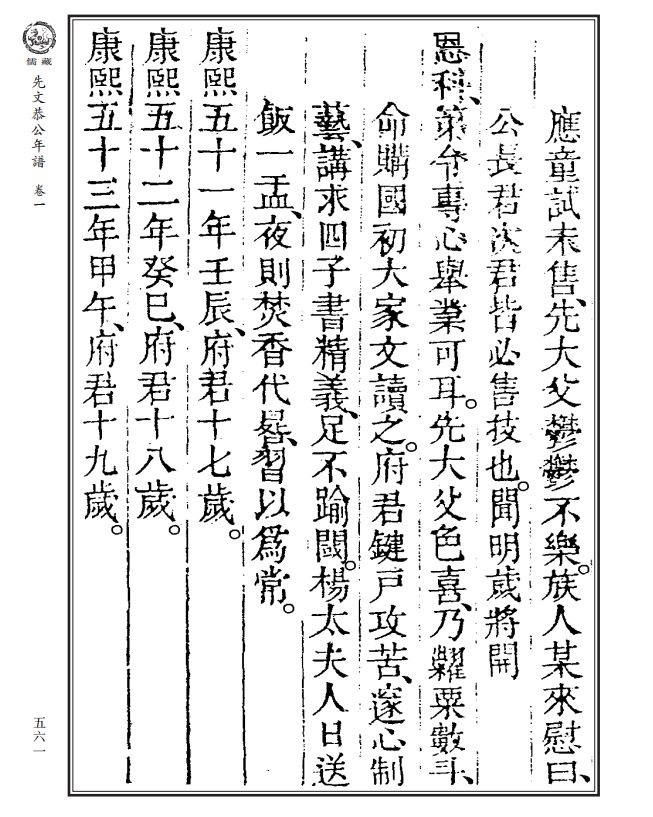 應童試未售、先大父鬱鬱不樂。族人某來慰曰、
公長君次君皆必售技也。聞明歲將開
恩科、第令專心舉業可耳。先大父色喜、乃糶粟數斗、
命購國初大家文讀之。府君鍵戶攻苦、邃心制
藝、講求四子書精義、足不踰閾。楊太夫人日送
飯一盂、夜則焚香代晷、習以爲常。
康熙五十一年壬辰、府君十七歲。
康熙五十二年癸巳、府君十八歲。
康熙五十三年甲午、府君十九歲。
儒藏
先文恭公年譜 卷一
五六一